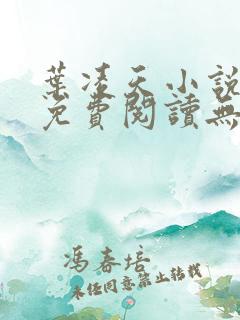 葉凌天小說
免費閱讀無
馮春培
未經同意禁止轉載